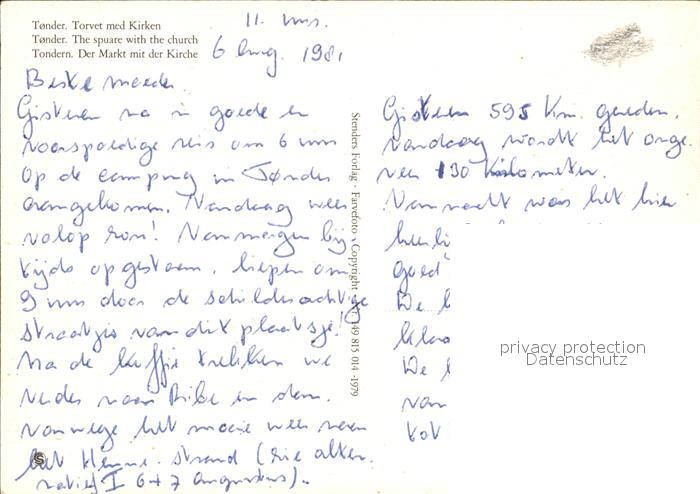 Tønder. Torvet med Kirken
Tønder. The spuare with the church
Tondern. Der Markt mit der Kirche
11. uur.
6 aug. 1981
Beste moeder.
Gisteren na 'n goede en
voorspoedige reis om 6 uur
op de camping in Tønder
aangekomen. Vandaag weer
volop zon! Vanmorgen bij
tijds opgestaan, liepen om
9 uur door de schilderachtige
straatjes van dit plaatsje!
Na de koffie trekken we
verder naar Ribe en dan.
vanwege het mooie weer naar
het Henne-strand (zie alter-
natief I 6+7 augustus).
Stenders Forlag · Farvefoto · Copyright 815 014 -1979
Gisteren 595 Km. gereden,
vandaag wordt het onge-
veer 130 Kilometer.
Vannacht was het hier
heerli
goed
De
klaa
De
van
tot
privacy protection
Datenschutz